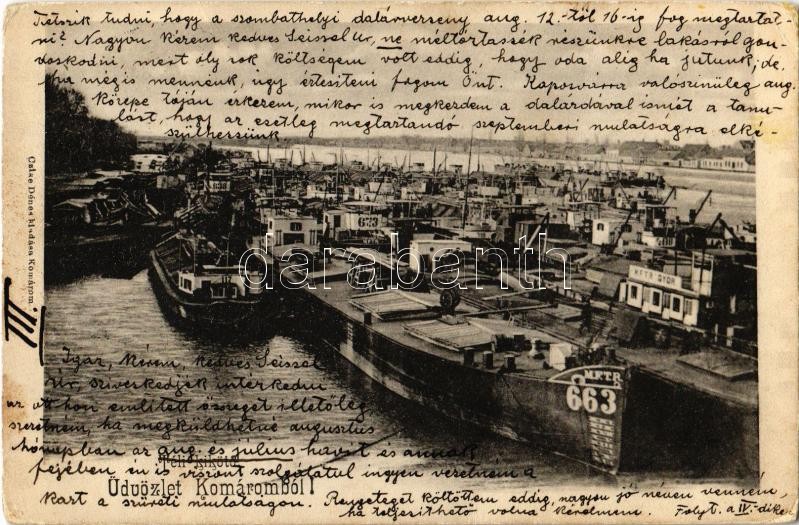 Tetszik tudni, hogy a szombathelyi dalárverseny aug. 12.-től 16-ig fog megtartat-
ni? Nagyon kérem kedves Seissel Úr, ne méltóztassék részünkre lakásról gon-
doskodni, mert oly sok költségem volt eddig, hogy oda alig ha jutunk; de,
ha mégis mennénk, úgy értesíteni fogom Önt. Kaposvárra valószinüleg aug.
közepe táján érkezem, mikor is megkezdem a dalárdával ismét a tanu-
lást, hogy az esetleg megtartandó szeptemberi mulatságra elké-
szülhessünk
Czike Dénes kiadása Komárom.
III.
darabanth
663
638
M.F.T.R. GYŐR
M.F.T.R.
663
Igaz, kérem, kedves Seissel
Úr, sziveskedjék intézkedni
az ott hon említett összeget illetőleg
szeretném, ha megküldhetné augusztus
hónapban az aug. és július havit és annak
fejében én is viszont szolgálatul ingyen vezetném a
Téli kikötő
Üdvözlet Komáromból!
kart a szüreti mulatságon. Rengeteget költöttem eddig, nagyon jó néven venném,
ha teljesíthető volna kérelmem. Folyt. a IV.-dike